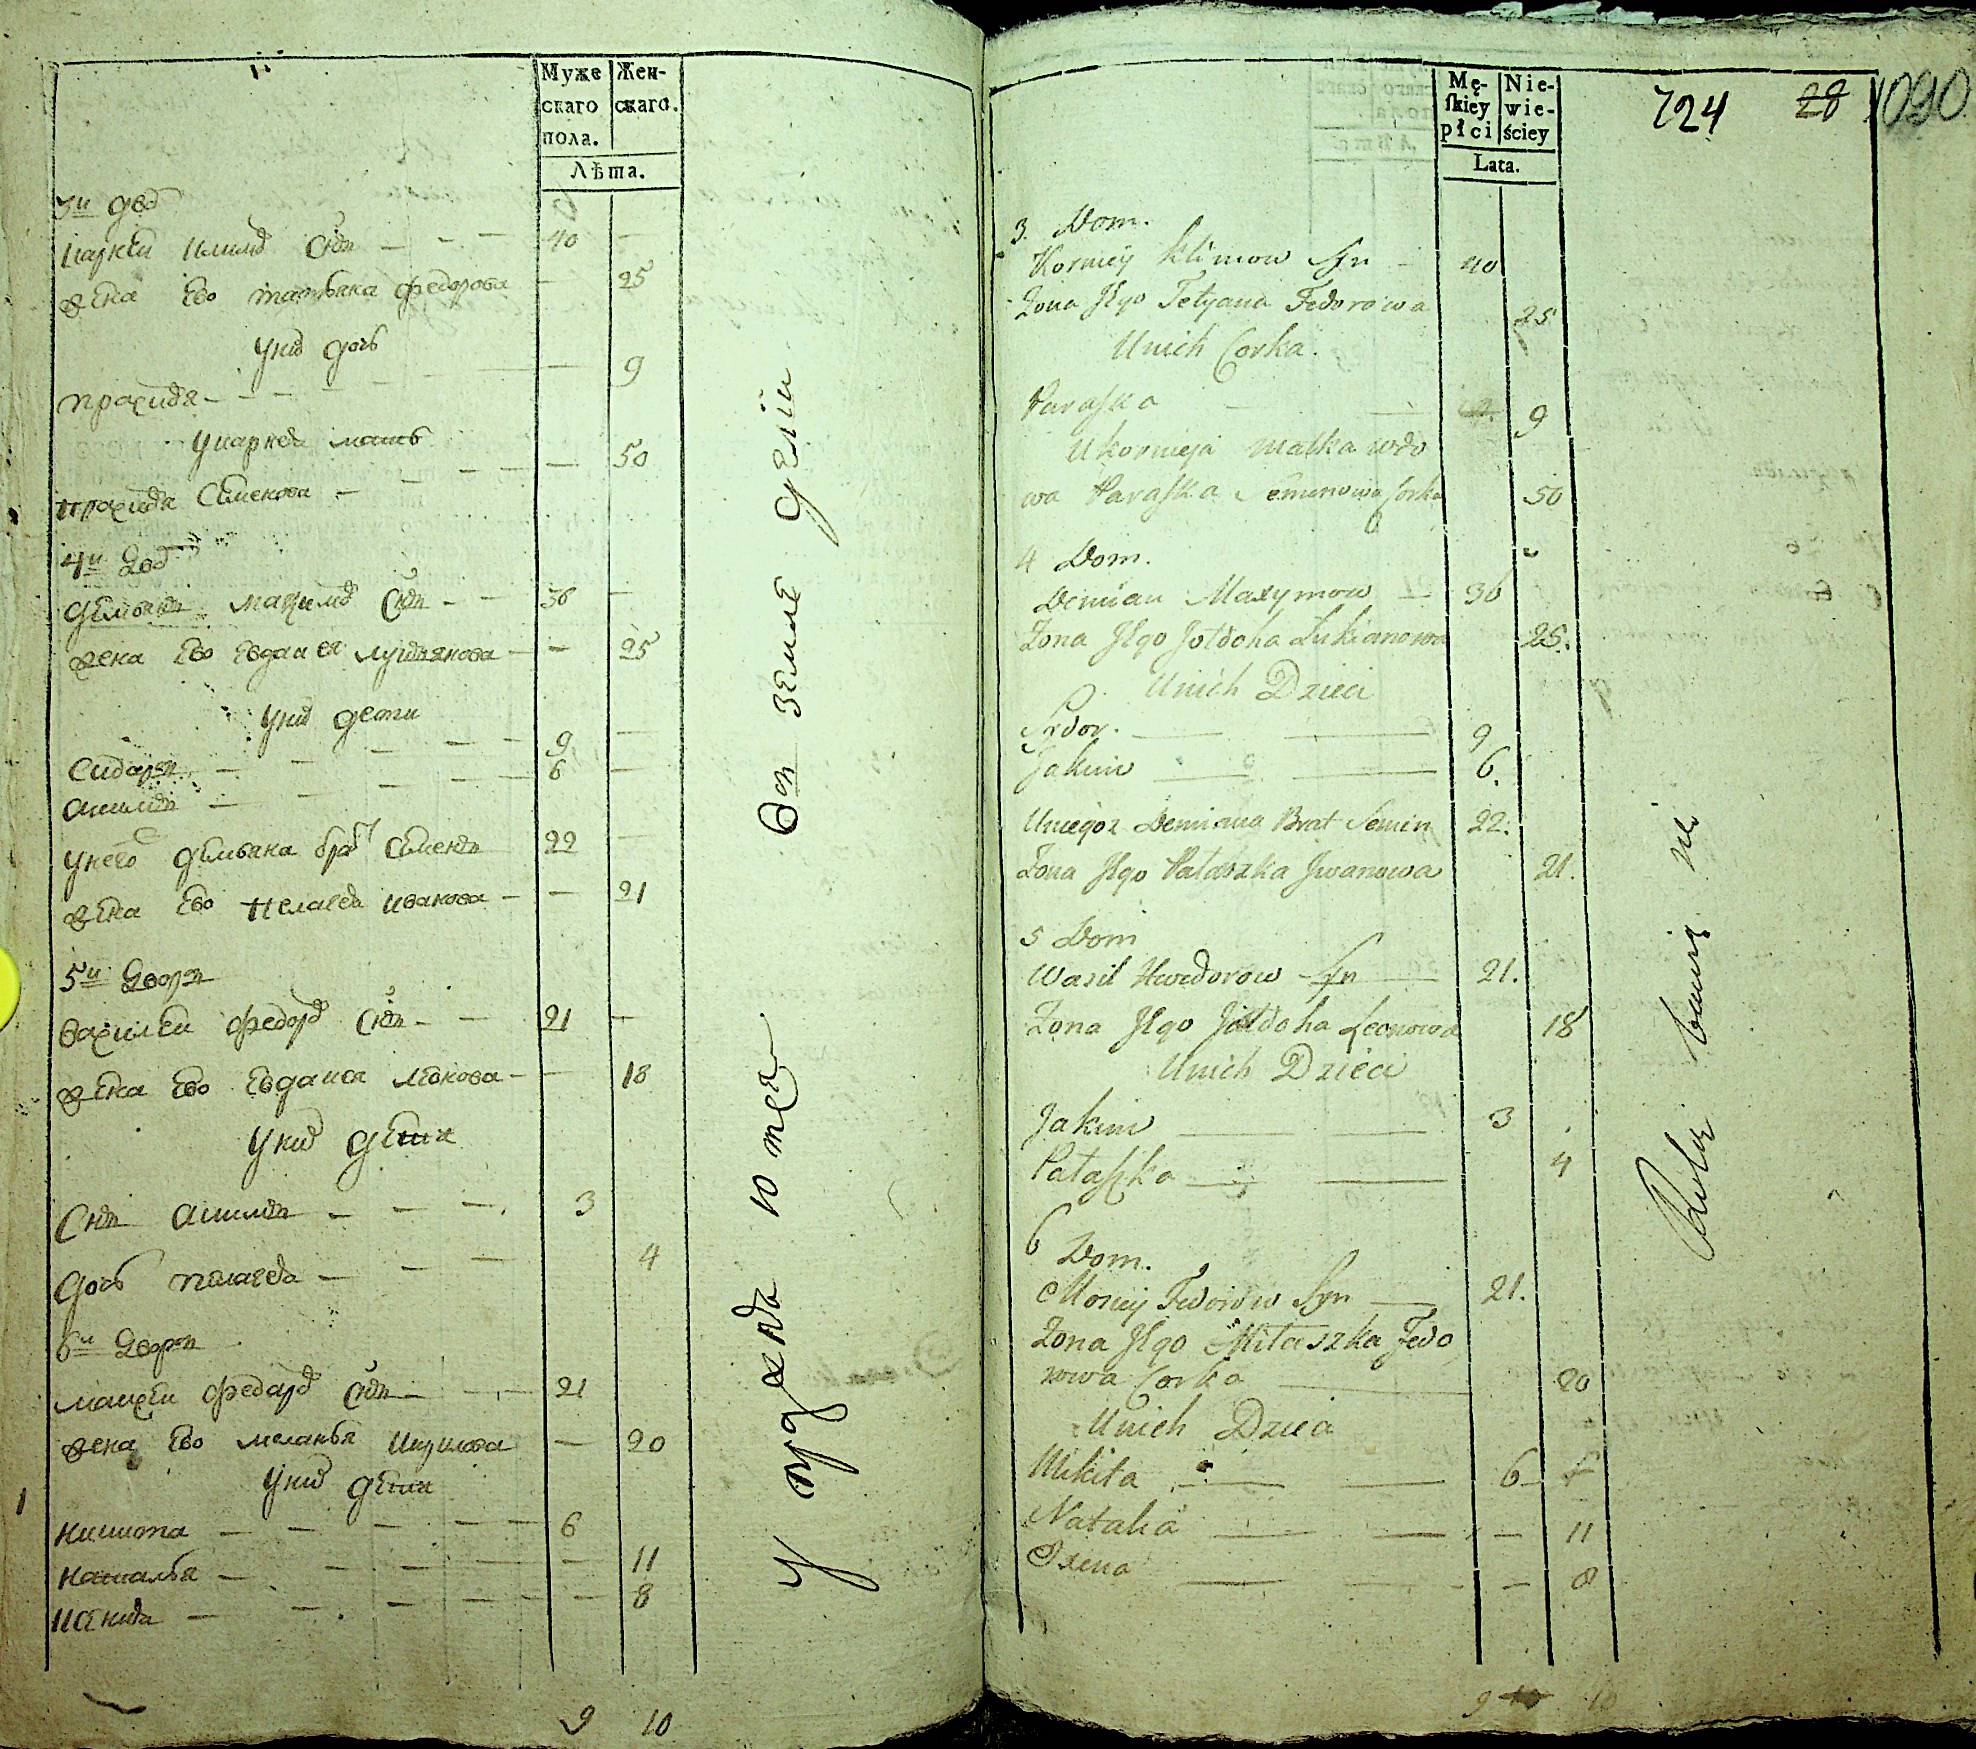 Муже
скаго
пола.
Жен-
скаго.
Лѣта.
3й дво
карнѣй климо снъ 40
жена ево татьяна федорова 25
у них дочь
прасковя 9
у карнея мать
прасковя семенова 50
4й дво
демьянъ максимо снъ 36
жена ево евдакея лукьянова 25
у них дети
сидаръ 9
акимъ 6
у него демьяна брат семенъ 22
жена ево пелагея иванова 21
5й дворъ
василей федоро снъ 21
жена ево евдакея леонова 18
у них дети
снъ акимъ 3
дочь пелагея 4
6й дворъ
маисей федоро снъ 21
жена ево меланья
у них дети 20
никита 6
наталья 11
ксения 8
9 10
Mę-
skiey
płci
Nie-
wie-
ściey
Lata.
724 28 1090
3. Dom.
Korniey Klimow Syn 40
Zona Jego Tetyana Fedorowa 25
Unich Corka.
Paraska 9
U Kornieja Matka wdo
wa Paraska Semenowa Corka 50
4 Dom.
Demian Maxymow 36
Zona Jego Jotdoha Lukianowa 25.
Unich Dzieci
Sidor. 9
Jakim 6.
Uniegoz Demiana Brat Semin 22.
Zona Jego Pataszka Jwanowa 21.
5 Dom
Wasil Hwedorow Syn 21.
Zona Jego Jotdoha Leonowa 18
Unich Dzieci
Jakim 3
Pataszka 4
6 Dom.
Mosiey Fedorow Syn 21.
Zona Jego Mitaszka Fedo
rowa Corka 20
Unich Dzieci
Mikita 6
Natalia 11
Xenia 8
9 10